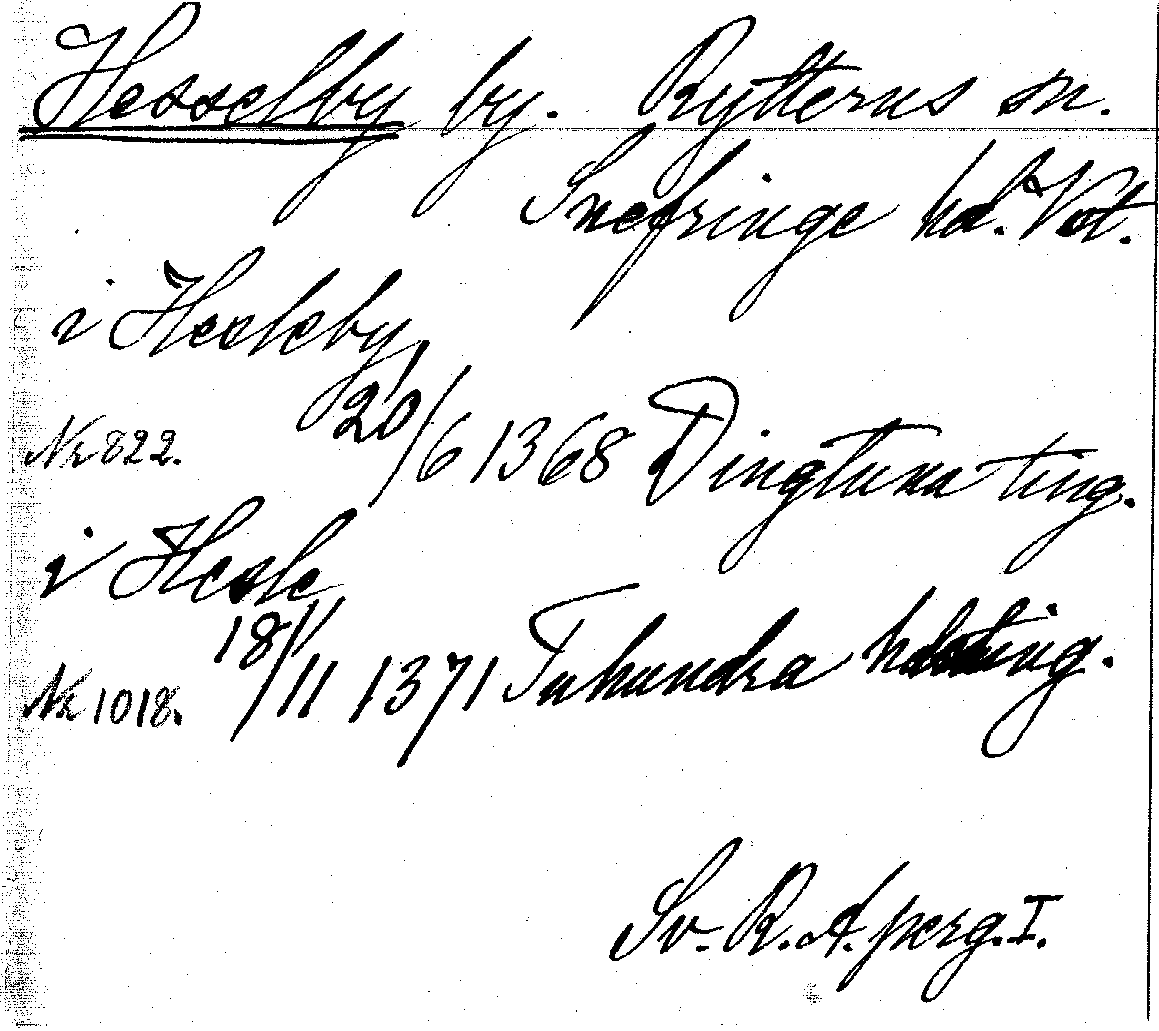 Hesselby by. Rytterns sn.
Snefringe hd. Vstm.
i Hesleby
Nr 822. 20/6 1368 Dingtuna ting.
i Hesle
Nr 1018. 18/11 1371 Tuhundra hdsting.
Sv. R. A. perg. I.